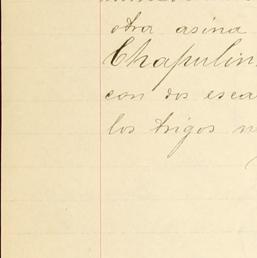 otra asina
Chapulin
con dos esca
los trigos n